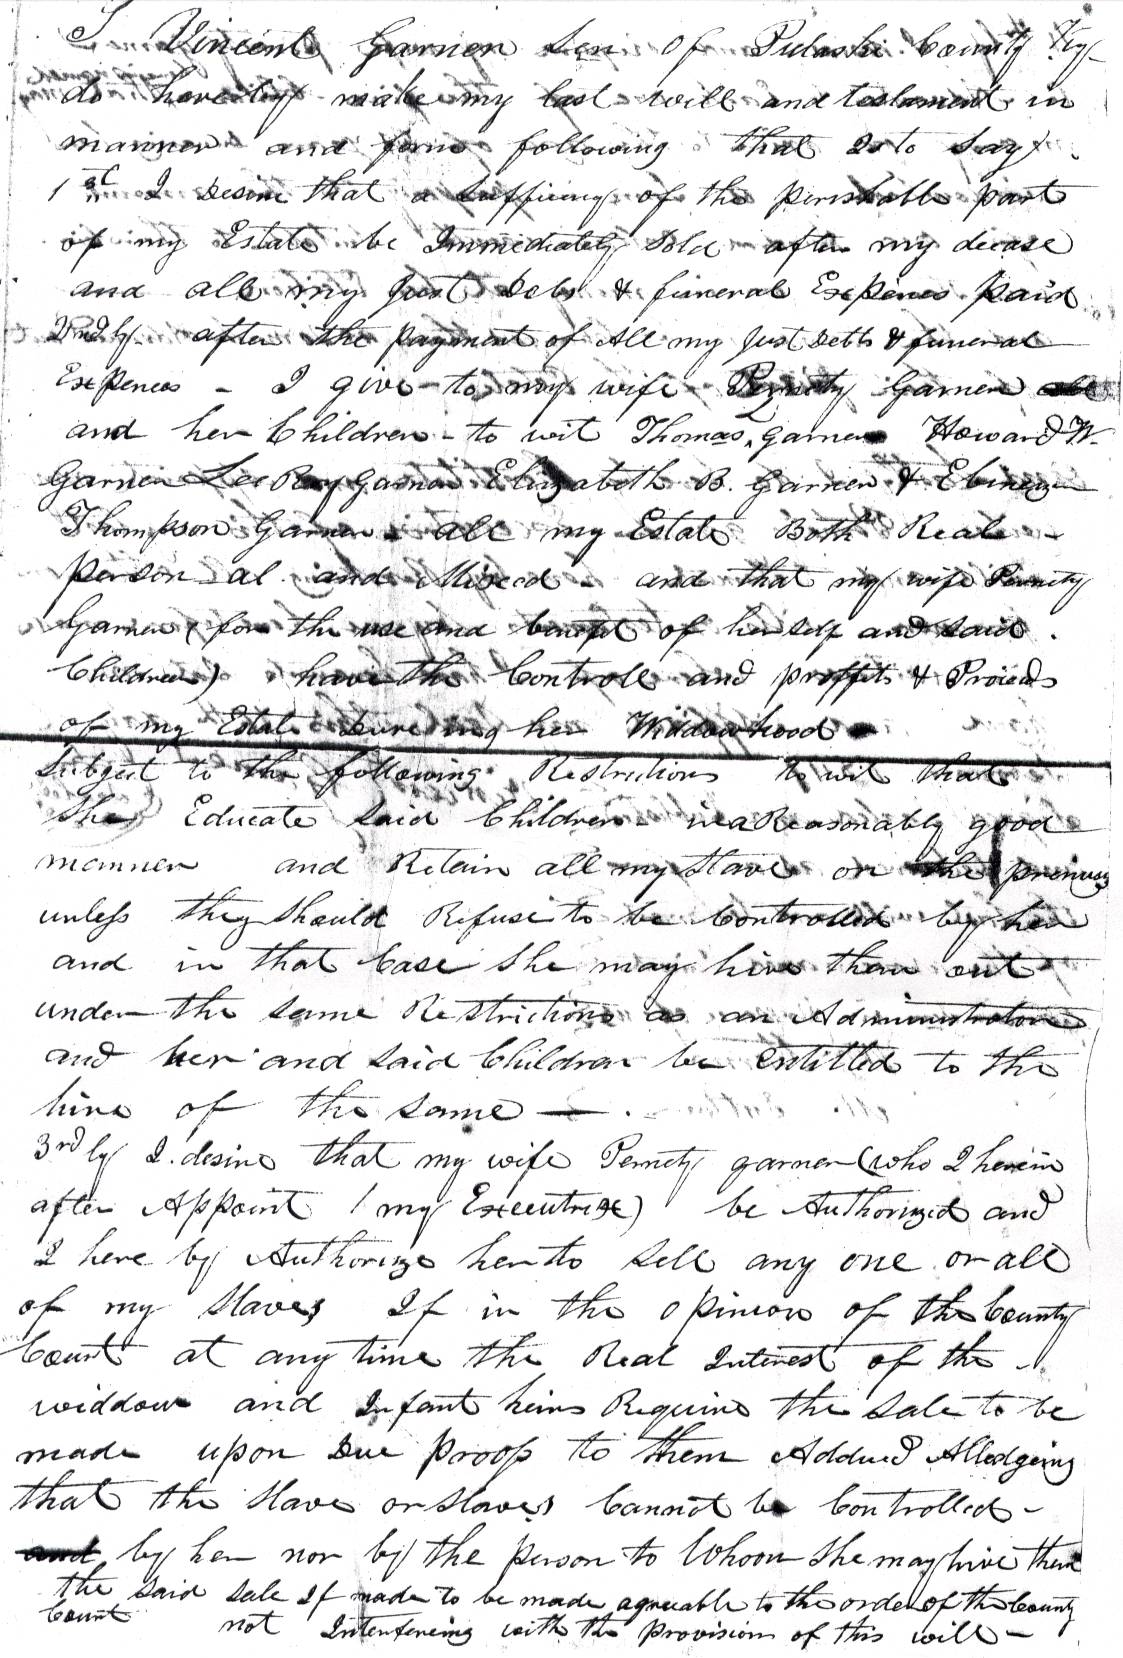 I Vincent Garner Sen of Pulaski County Ky
do hereby make my last will and testament in
manner and form following that Is to Say
1st I Desire that a sufficiency of the perishable part
of my Estate be Immediately Sold after my decase
and all my Just Debs & funeral Expences paid
2ndly after the payment of All my Just Debts & funeral
Expences - I give to my wife Pernety Garner
and her Children - to wit Thomas Garner Howard W.
Garner Lee Roy Garner Elizabeth B. Garner & Ebinezer
Thompson Garner all my Estate Both Real -
person al and Mixed - and that my wife Pernety
Garner (for the use and benefit of her self and said
Children) have the Controll and proffits & Proceeds
of my Estate Dureing her Widdowhood
Subject to the following Restrictions to wit that
She Educate said Children - in a Reasonably good
manner and Retain all my Slave on the premises
unless they should Refuse to be Controlled by her
and in that Case She may hire them out
under the same Restrictions as an Administrator
and her and said Children be entitled to the
hire of the same -
3rdly I desire that my wife Pernety garner (who I herein
after Appoint my Executrix) be Authorized and
I here by Authorize her to sell any one or all
of my Slaves If in the opinion of the County
Court at any time the Real Interest of the
widdow and Infant heirs Require the sale to be
made upon Due proof to them Addued Alledgeing
that the Slave or Slaves Cannot be Controlled -
and by her nor by the person to Whoom She may hire them
the said sale If made to be made agreeable to the order of the County
Court not Interfereing with the provisions of this will -